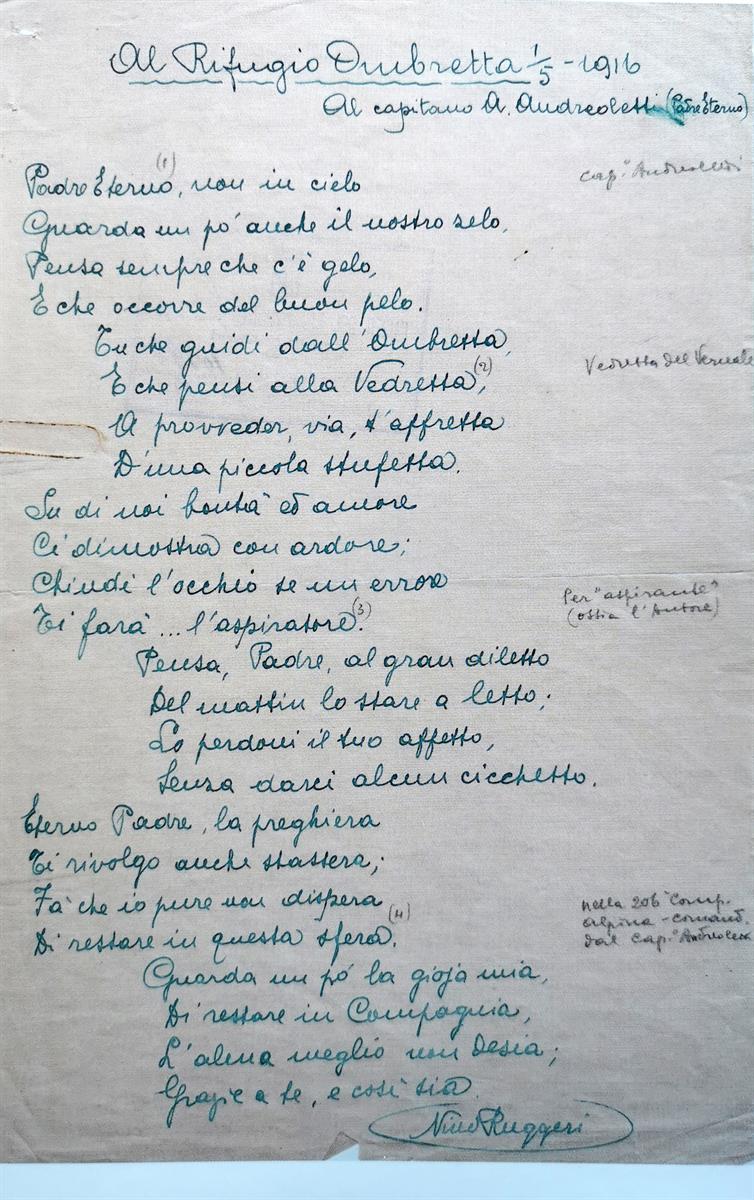 Al Rifugio Ombretta 1/5 - 1916
Al capitano A. Andreoletti (Padre Eterno)
Padre Eterno (1), non in cielo
cap.º Andreoletti
Guarda un pò anche il nostro zelo,
Pensa sempre che c'è gelo,
E che occorre del buon pelo.
Tu che guidi dall'Ombretta,
E che pensi alla Vedretta (2),
Vedretta del Vernale
A provveder, via, t'affretta
D'una piccola stufetta.
Su di noi bontà ed amore
Ci dimostra con ardore;
Chiudi l'occhio se un errore
Ti farà ... l'aspiratore (3).
Per "aspirante"
(ossia l'Autore)
Pensa, Padre, al gran diletto
Del mattin lo stare a letto;
Lo perdoni il tuo affetto,
Senza darci alcun cicchetto.
Eterno Padre, la preghiera
Ti rivolgo anche stassera;
Fà che io pure non dispera
Di restare in questa sfera (4).
nella 206ª Comp.
alpina - comand.
dal cap.º Andreoletti
Guarda un pò la gioja mia,
Di restare in Compagnia,
L'alma meglio non desia;
Grazie a te, e così sia.
Nino Ruggeri